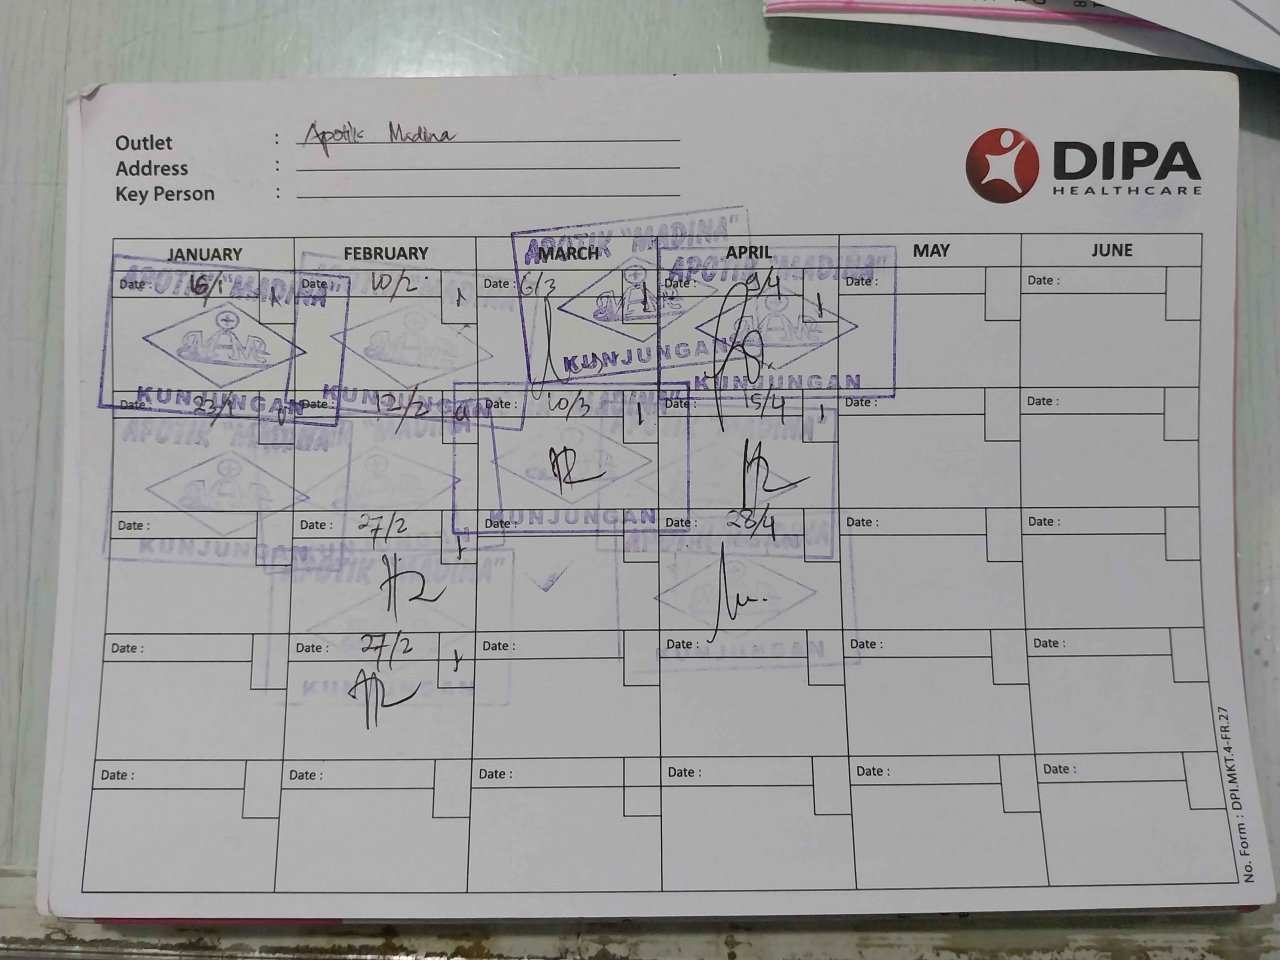 Outlet : Apotik Madina
Address :
Key Person :
DIPA
HEALTHCARE
JANUARY FEBRUARY MARCH APRIL MAY JUNE
Date : 16/1 Date : 10/2 Date : 6/3 Date : 9/4 Date : Date :
APOTIK "MADINA"
KUNJUNGAN
APOTIK "MADINA"
KUNJUNGAN
APOTIK "MADINA"
KUNJUNGAN
Date : 23/1 Date : 12/2 Date : 10/3 Date : 15/4 Date : Date :
APOTIK "MADINA"
KUNJUNGAN
KUNJUNGAN
Date : Date : 27/2 Date : Date : 28/4 Date : Date :
APOTIK "MADINA"
KUNJUNGAN
KUNJUNGAN
Date : Date : 27/2 Date : Date : Date : Date :
Date : Date : Date : Date : Date : Date :
No. Form : DPI.MKT.4-FR.27